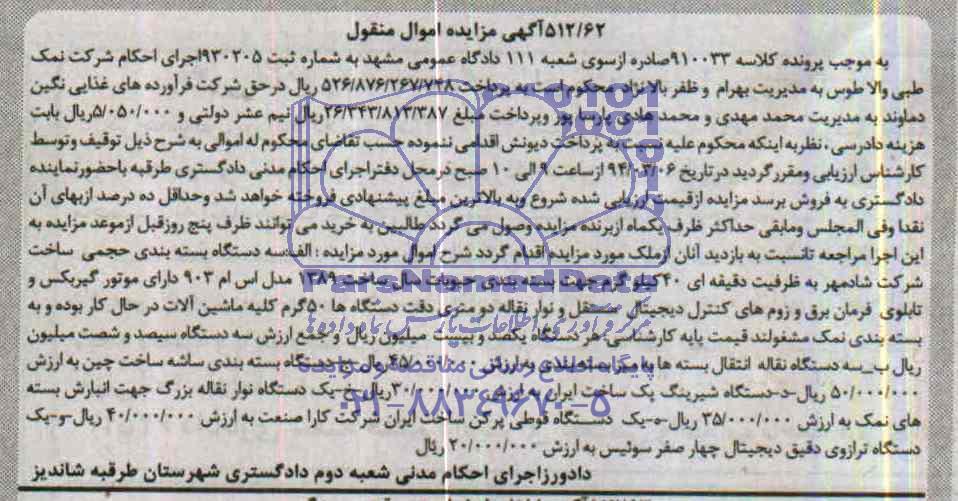 ۵۱۲/۶۲آگهی مزایده اموال منقول
به موجب پرونده کلاسه ۹۱۰۰۳۳صادره ازسوی شعبه ۱۱۱ دادگاه عمومی مشهد به شماره ثبت ۹۳۰۲۰۵اجرای احکام شرکت نمک
طبی والا طوس به مدیریت بهرام و ظفر بالا نژاد محکوم است به پرداخت ۵۲۶/۸۷۶/۲۶۷/۷۴۸ ریال درحق شرکت فرآورده های غذایی نگین
دماوند به مدیریت محمد مهدی و محمد هادی پارسا پور وپرداخت مبلغ ۲۶/۳۴۳/۸۱۳/۳۸۷ریال نیم عشر دولتی و ۵/۰۵۰/۰۰۰ریال بابت
هزینه دادرسی ، نظربه اینکه محکوم علیه نسبت به پرداخت دیونش اقدامی ننموده حسب تقاضای محکوم له اموالی به شرح ذیل توقیف وتوسط
کارشناس ارزیابی ومقررگردید درتاریخ ۹۴/۰۳/۰۶ ازساعت ۹ الی ۱۰ صبح درمحل دفتراجرای احکام مدنی دادگستری طرقبه باحضورنماینده
دادگستری به فروش برسد مزایده ازقیمت ارزیابی شده شروع وبه بالاترین مبلغ پیشنهادی فروخته خواهد شد وحداقل ده درصد ازبهای آن
نقدا وفی المجلس ومابقی حداکثر ظرف یکماه ازبرنده مزایده وصول می گردد طالبین به خرید می توانند ظرف پنج روزقبل ازموعد مزایده به
این اجرا مراجعه تانسبت به بازدید آنان ازملک مورد مزایده اقدام گردد شرح اموال مورد مزایده : الف-سه دستگاه بسته بندی حجمی ساخت
شرکت شادمهر به ظرفیت دقیقه ای ۴۰کیلو گرم جهت بسته بندی حبوبات سال ساخت ۱۳۸۹ مدل اس ام ۹۰۳ دارای موتور گیربکس و
تابلوی فرمان برق و زوم های کنترل دیجیتال مستقل و نوار نقاله دو متری دقت دستگاه ها ۵۰گرم کلیه ماشین آلات در حال کار بوده و به
بسته بندی نمک مشغولند قیمت پایه کارشناسی هر دستگاه یکصد و بیست میلیون ریال و جمع ارزش سه دستگاه سیصد و شصت میلیون
ریال ب_سه دستگاه نقاله انتقال بسته ها به میز بسته بندی به ارزش ۴۵/۰۰۰/۰۰۰ ریال-ج-دستگاه بسته بندی ساشه ساخت چین به ارزش
۵۰/۰۰۰/۰۰۰ ریال-د-دستگاه شیرینگ پک ساخت ایران به ارزش ۳۰/۰۰۰/۰۰۰ ریال-خ-یک دستگاه نوار نقاله بزرگ جهت انبارش بسته
های نمک به ارزش ۳۵/۰۰۰/۰۰۰ ریال-ه-یک دستگاه قوطی پرکن ساخت ایران شرکت کارا صنعت به ارزش ۴۰/۰۰۰/۰۰۰ ریال-و-یک
دستگاه ترازوی دقیق دیجیتال چهار صفر سوئیس به ارزش ۲۰/۰۰۰/۰۰۰ ریال
دادورزاجرای احکام مدنی شعبه دوم دادگستری شهرستان طرقبه شاندیز
ParsNamadData
مرکز فرآوری اطلاعات پارس نماد داده ها
پایگاه اطلاع رسانی مناقصه و مزایده
۰۲۱-۸۸۳۴۹۶۷۰-۵